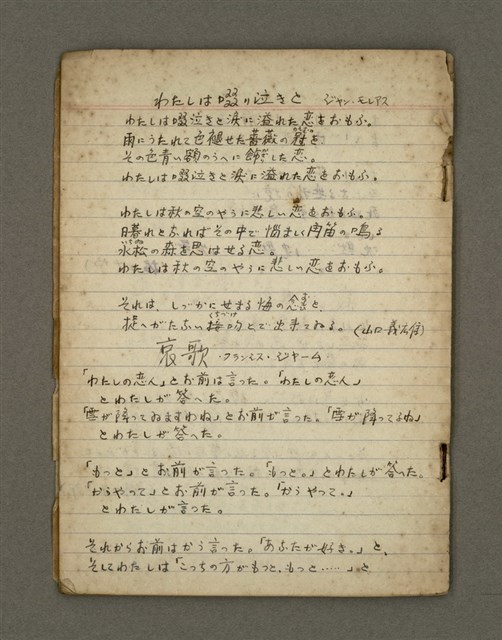 わたしは啜り泣きと ジャン・モレアス
わたしは啜泣きと涙に溢れた恋をおもふ。
雨にうたれて色褪せた薔薇の冠を
その色青い額のうへに飾した恋。
わたしは啜泣きと涙に溢れた恋をおもふ。
わたしは秋の空のやうに悲しい恋をおもふ。
日暮れともなればその中で悩ましく角笛の鳴る
水松の森を思はせる恋。
わたしは秋の空のやうに悲しい恋をおもふ。
それは、しづかにせまる悔の念と、
はかない接吻とで出来てゐる。
哀歌 ・フランシス・ジャーム
「わたしの恋人」とお前は言った。「わたしの恋人」
とわたしが答へた。
「雪が降ってゐますわね」とお前が言った。「雪が降ってよね」
とわたしが答へた。
「もっと」とお前が言った。「もっと。」とわたしが答った。
「かうやって」とお前が言った。「かうやって。」
とわたしが言った。
それからお前はかう言った。「あなたが好き。」と、
そしてわたしは「こっちの方がもっと、もっと……」と